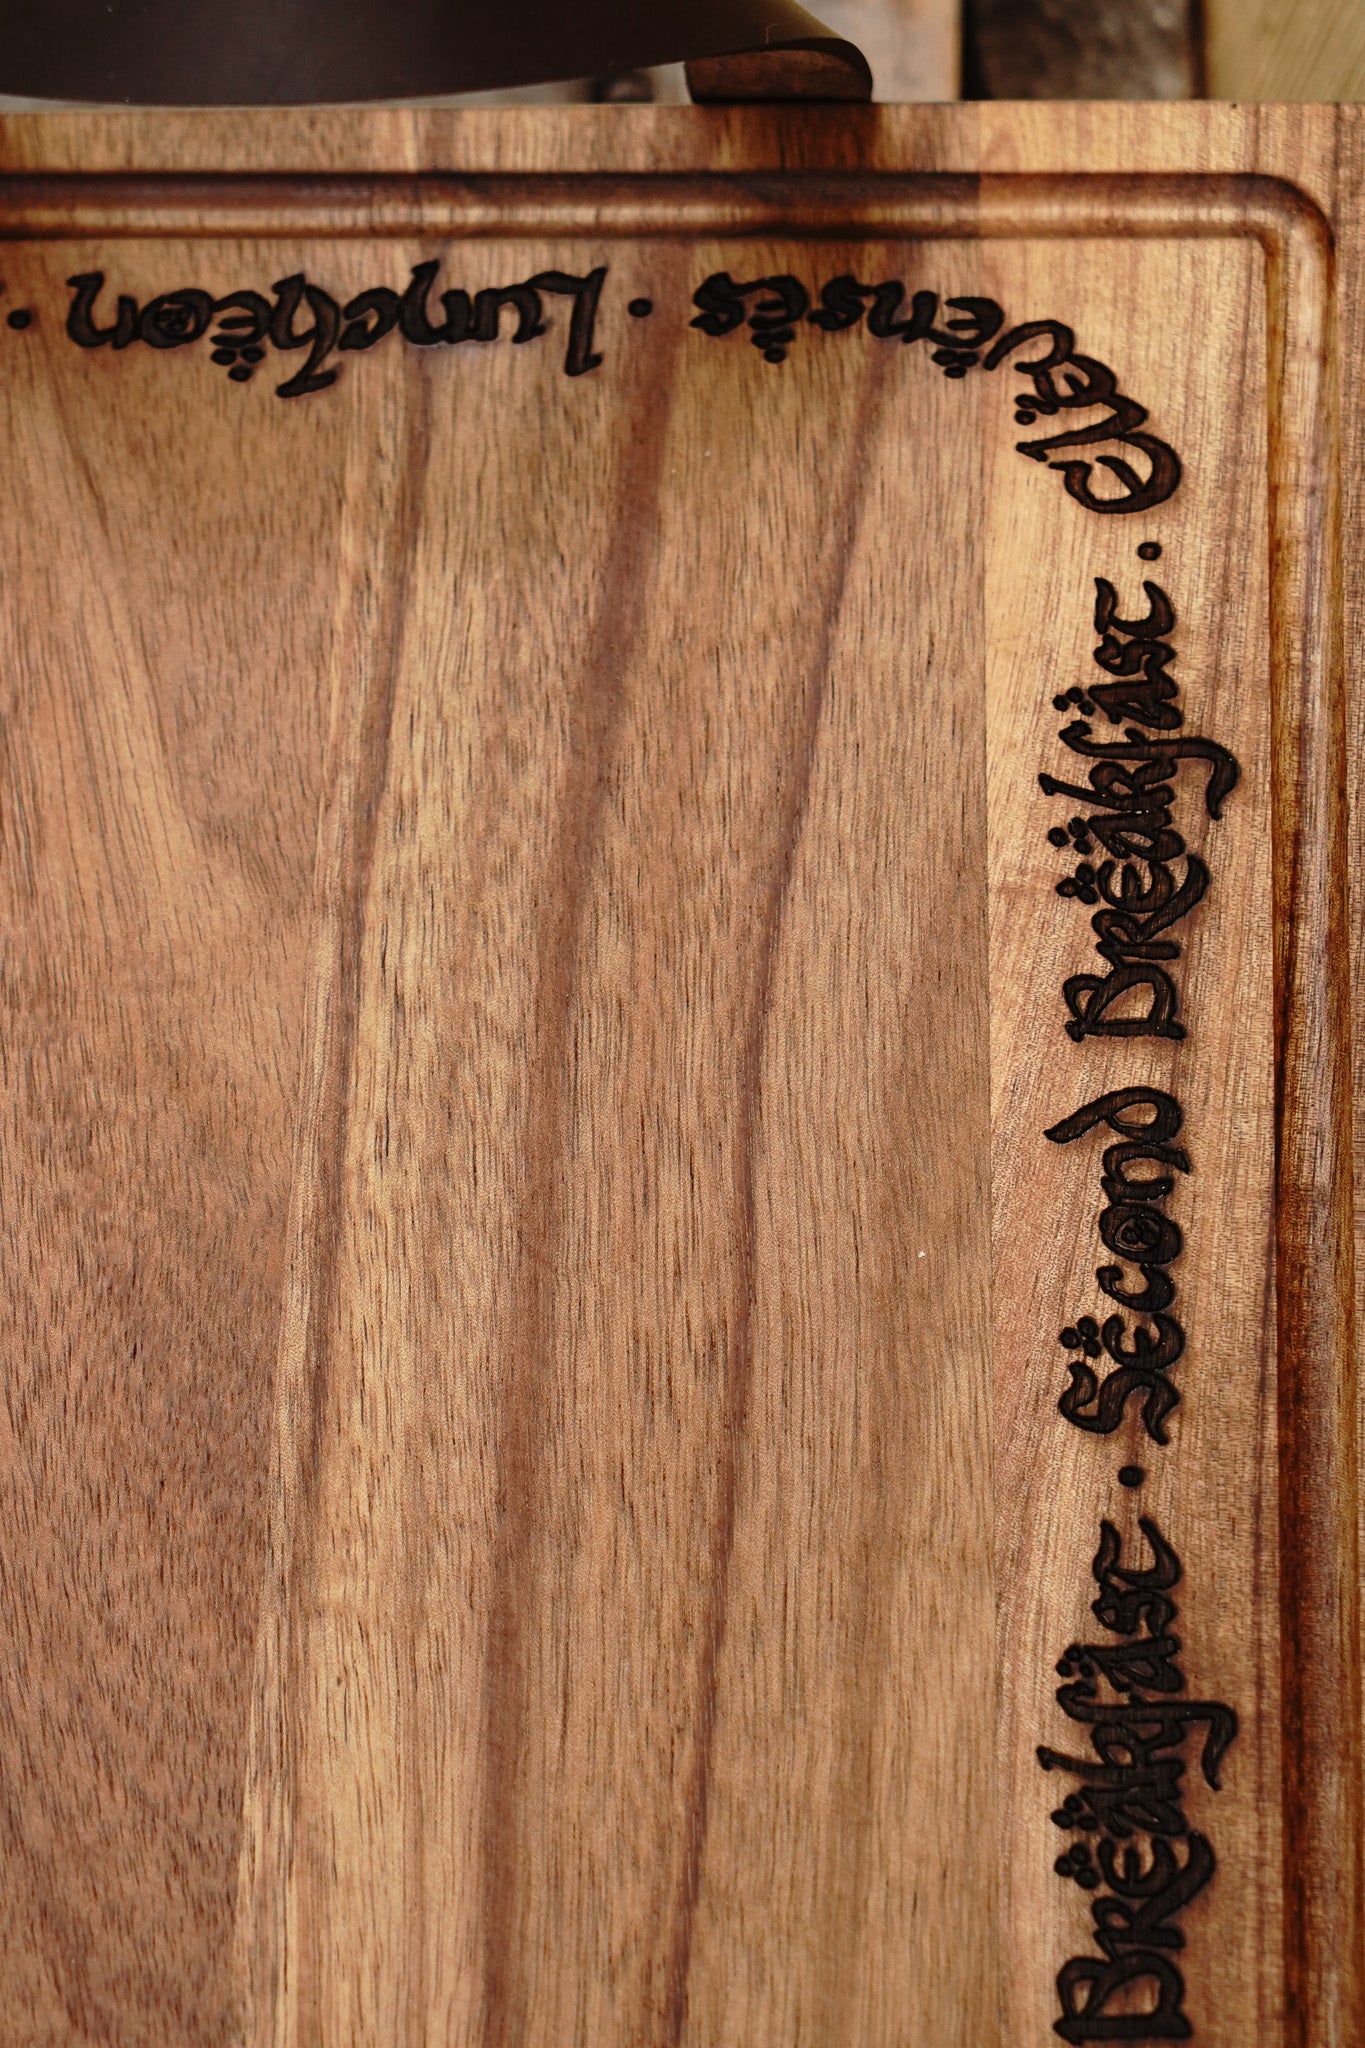 Breakfast · Second Breakfast · Elevenses · Luncheon ·